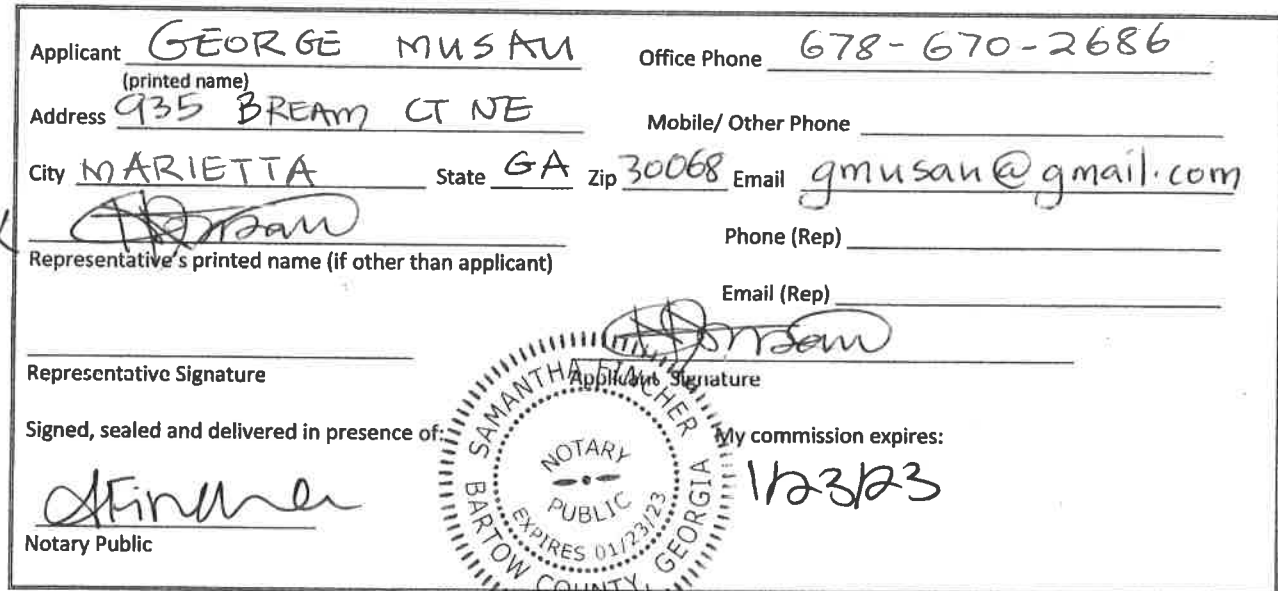 Applicant GEORGE MUSAU Office Phone 678-670-2686
(printed name)
Address 935 BREAM CT NE Mobile/ Other Phone
City MARIETTA State GA Zip 30068 Email gmusau@gmail.com
Representative's printed name (if other than applicant) Phone (Rep)
Email (Rep)
Representative Signature Applicant Signature
Signed, sealed and delivered in presence of: My commission expires:
1/23/23
Notary Public
SAMANTHA FINCHER
NOTARY
PUBLIC
EXPIRES 01/23/23
BARTOW COUNTY, GEORGIA